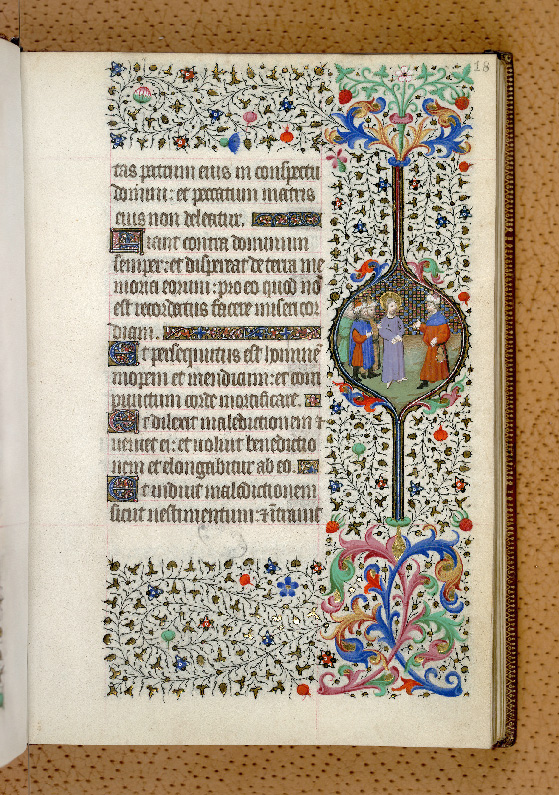 18
tas patrum eius in conspectu
domini: et peccatum matris
eius non deleatur.
Fiant contra dominum
semper: et dispereat de terra me
moria eorum: pro eo quod nō
est recordatus facere misericor
diam.
Et persequutus est hominē
inopem et mendicum: et com
punctum corde mortificare.
Et dilexit maledictionem et
veniet ei: et noluit benedictio
nem et elongabitur ab eo.
Et induit maledictionem
sicut vestimentum: et ītravit